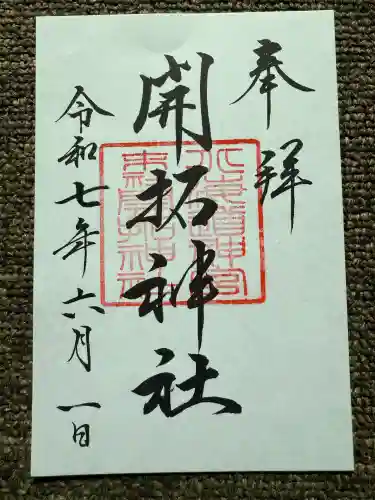 奉拝
開拓神社
令和七年六月一日
北海道神宮
末社開拓神社